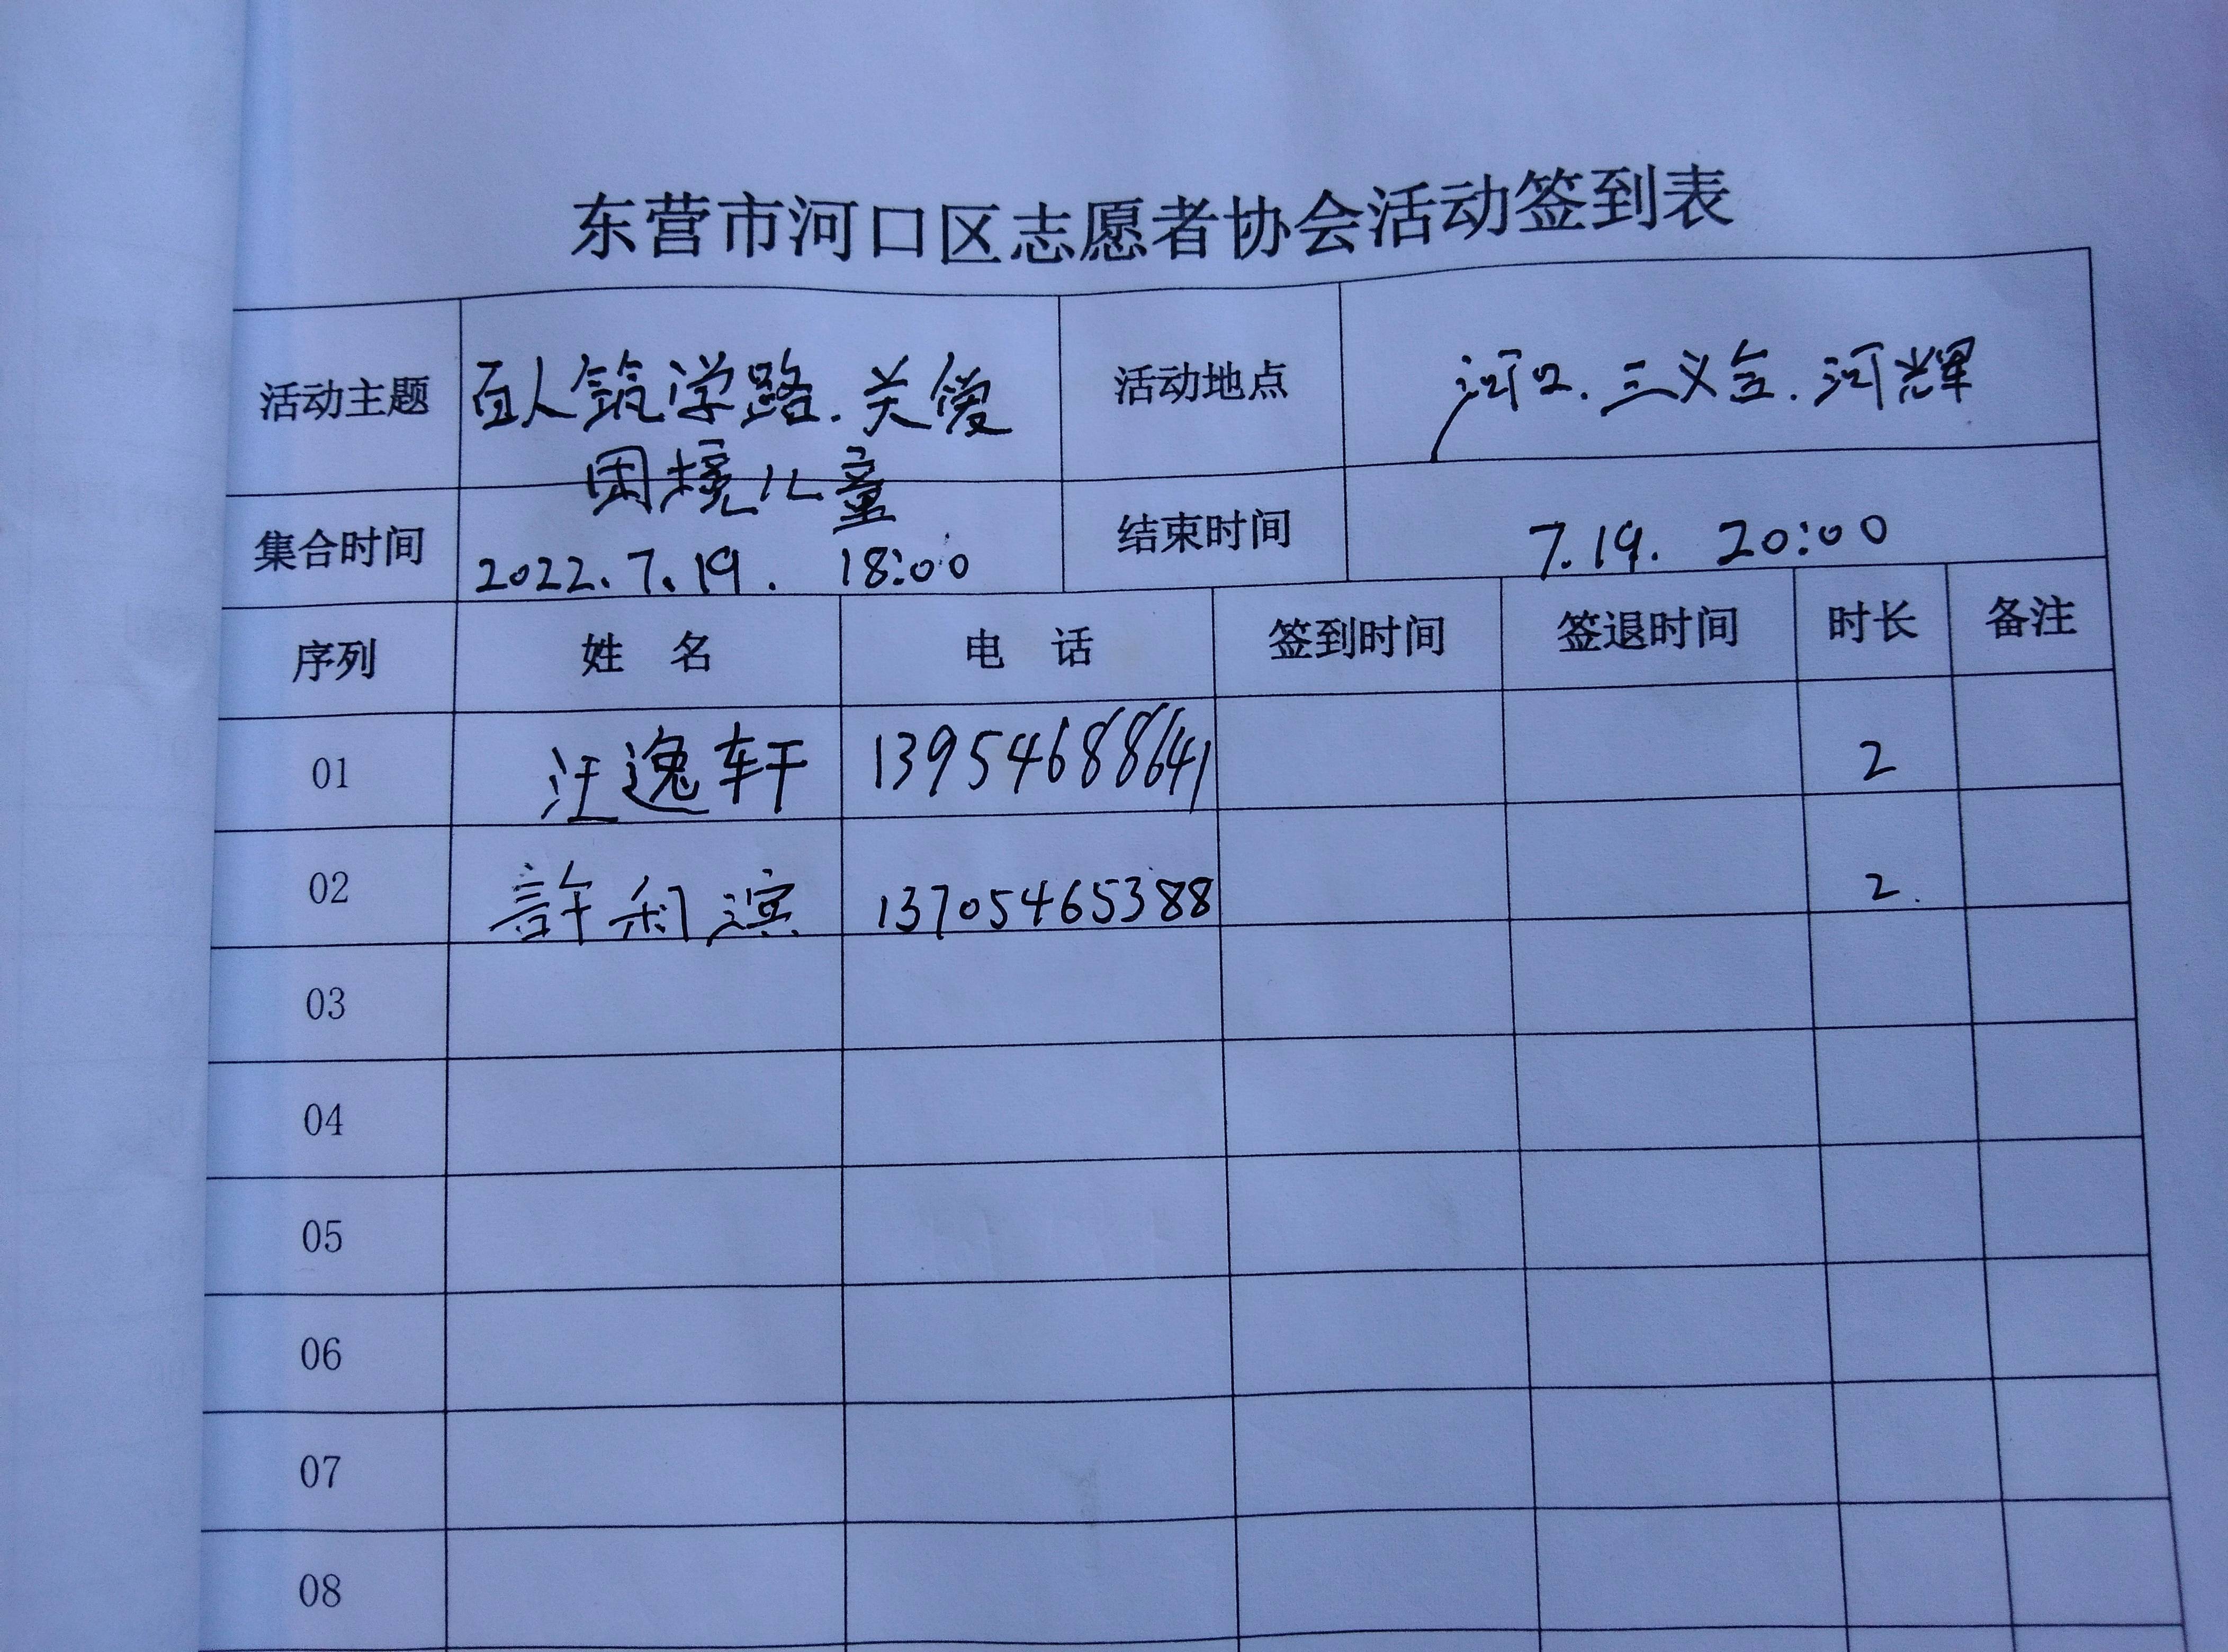 东营市河口区志愿者协会活动签到表
活动主题 百人筑学路.关爱困境儿童 活动地点 河口.三义合.河辉
集合时间 2022.7.19. 18:00 结束时间 7.19. 20:00
序列 姓 名 电 话 签到时间 签退时间 时长 备注
01 汪逸轩 13954688641 2
02 許利滨 13705465388 2.
03
04
05
06
07
08